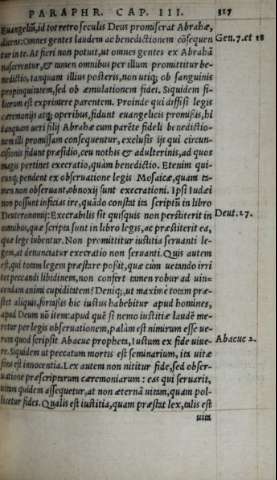 PARAPHR. CAP. III. 317
Euangelium, id tot retro seculis Deus promiserat Abrahæ,
dicens: Omnes gentes laudem ac benedictionem cōsequen
tur in te. At fieri non potuit, ut omnes gentes ex Abrahā
nascerentur, & tamen omnibus per illum promittitur be-
nedictio, tanquam illius posteris, non utiq; ob sanguinis
propinquitatem, sed ob æmulationem fidei. Siquidem fi-
liorum est exprimere parentem. Proinde qui diffisi legis
cæremonijs atq; operibus, fidunt euangelicis promißis, hi
tanquam ueri filij Abrahæ cum parēte fideli benedictio-
nem illi promissam consequentur, exclusis ijs qui circun-
cisionis fidunt præsidio, ceu nothis & adulterinis, ad quos
magis pertinet execratio, quàm benedictio. Etenim qui-
cunq; pendent ex obseruatione legis Mosaicæ, quam ta-
men non obseruant, obnoxij sunt execrationi. Ipsi Iudæi
non possunt inficias ire, quādo constat ita scriptū in libro
Deuteronomij: Execrabilis sit quisquis non perstiterit in
omnibus, quæ scripta sunt in libro legis, ac præstiterit ea,
quæ lege iubentur. Non promittitur iustitia seruanti le-
gem, at denunciatur execratio non seruanti. Quis autem
est, qui totam legem præstare poßit, quæ cùm uetando irri
tet peccandi libidinem, non confert tamen robur ad uin-
cendam animi cupiditatem? Deniq;, ut maximè totam præ-
stet aliquis, forsitan hic iustus habebitur apud homines,
apud Deum nō item: apud quē si nemo iustitiæ laudē me-
retur per legis obseruationem, palàm est nimirum esse ue-
rum quod scripsit Abacuc propheta, Iustum ex fide uiue-
re. Siquidem ut peccatum mortis est seminarium, ita uitæ
fons est innocentia. Lex autem non nititur fide, sed obser-
uatione præscriptarum cæremoniarum: eas qui seruarit,
uitam quidem assequetur, at non æternā uitam, quam pol-
licetur fides. Qualis est iustitia, quam præstat lex, talis est
uita
Gen. 7. et 18
Deut. 27.
Abacuc 2.